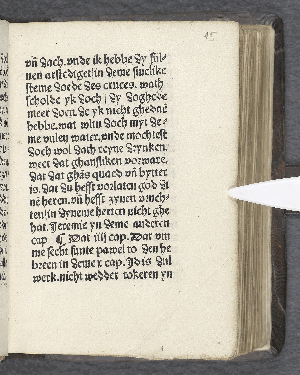 15
vñ dach. vnde ik hebbe dy sul-
steme dode des cruces. wath
scholde yk doch i dy doghede
meer doen de yk nicht ghedaē
hebbe. wat wltu doch myt de-
me vulen water. vnde mochtest
doch wol dath reyne drynken.
wect dat ghansliken vorware.
dat dat ghās quaed vñ bytter
is. dat du heffst vorlaten god di
nē heren. vñ heffst zynen vruch-
ten in dyneme herten nicht ghe
hat. Jeremie yn deme anderen
cap ¶ Dat iiij cap. Dar vm
me secht sunte pawel to den he
breen in deme x cap. Id is dul
werk. nicht wedder tokeren yn